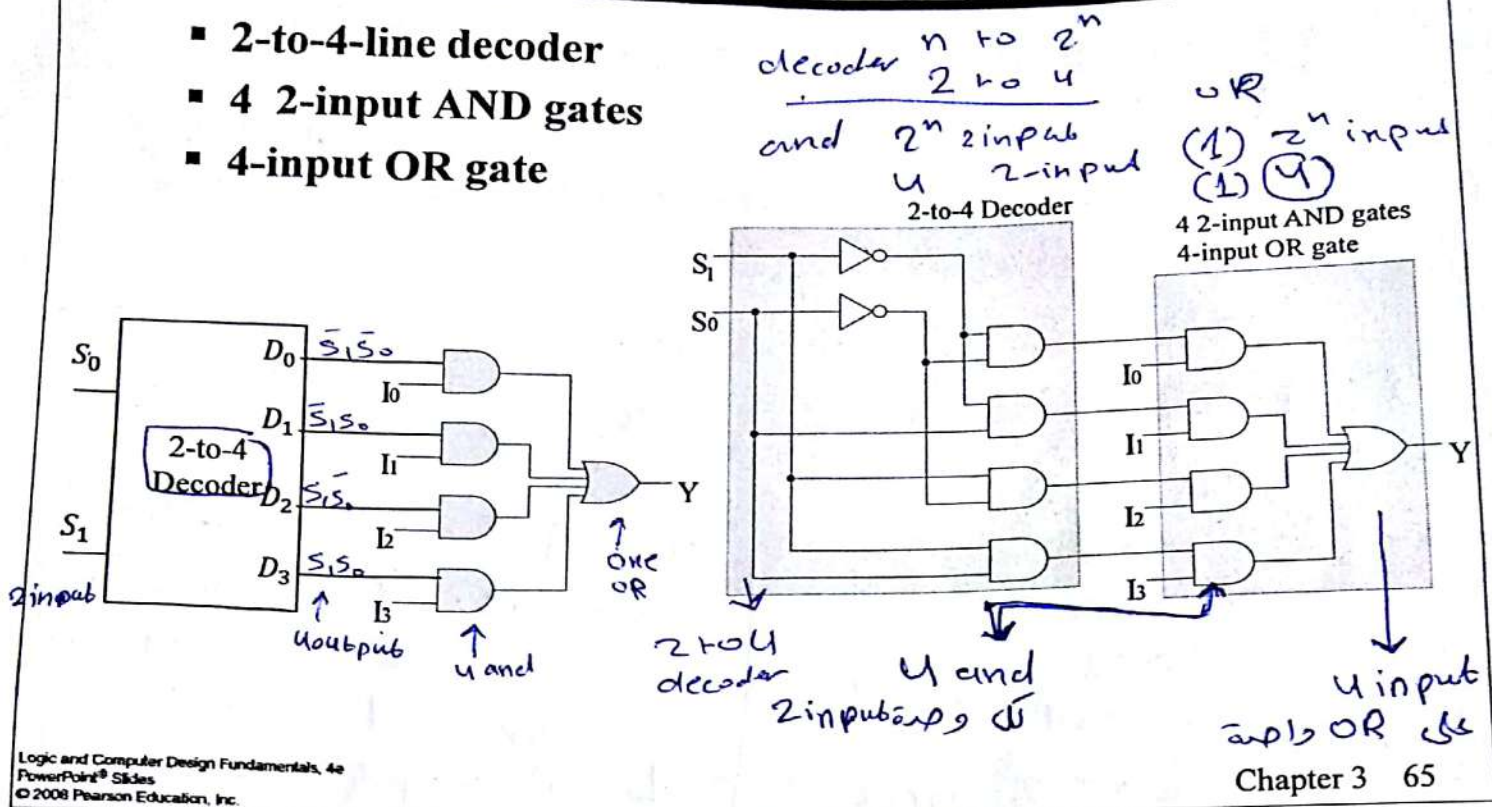 ▪ 2-to-4-line decoder
▪ 4 2-input AND gates
▪ 4-input OR gate
decoder n to 2ⁿ
2 to 4
and 2ⁿ 2input
4 2-input
OR
(1) 2ⁿ input
(1) 4
2-to-4 Decoder
4 2-input AND gates
4-input OR gate
S₀
S₁
2input
2-to-4
Decoder
D₀ S̄₁S̄₀
I₀
D₁ S̄₁S₀
I₁
D₂ S₁S̄₀
I₂
D₃ S₁S₀
I₃
Y
4output
4 and
one
OR
S₁
S₀
I₀
I₁
I₂
I₃
Y
2 to 4
decoder
4 and
كل وحدة 2input
4 input
على OR واحدة
Logic and Computer Design Fundamentals, 4e
PowerPoint® Slides
© 2008 Pearson Education, Inc.
Chapter 3 65